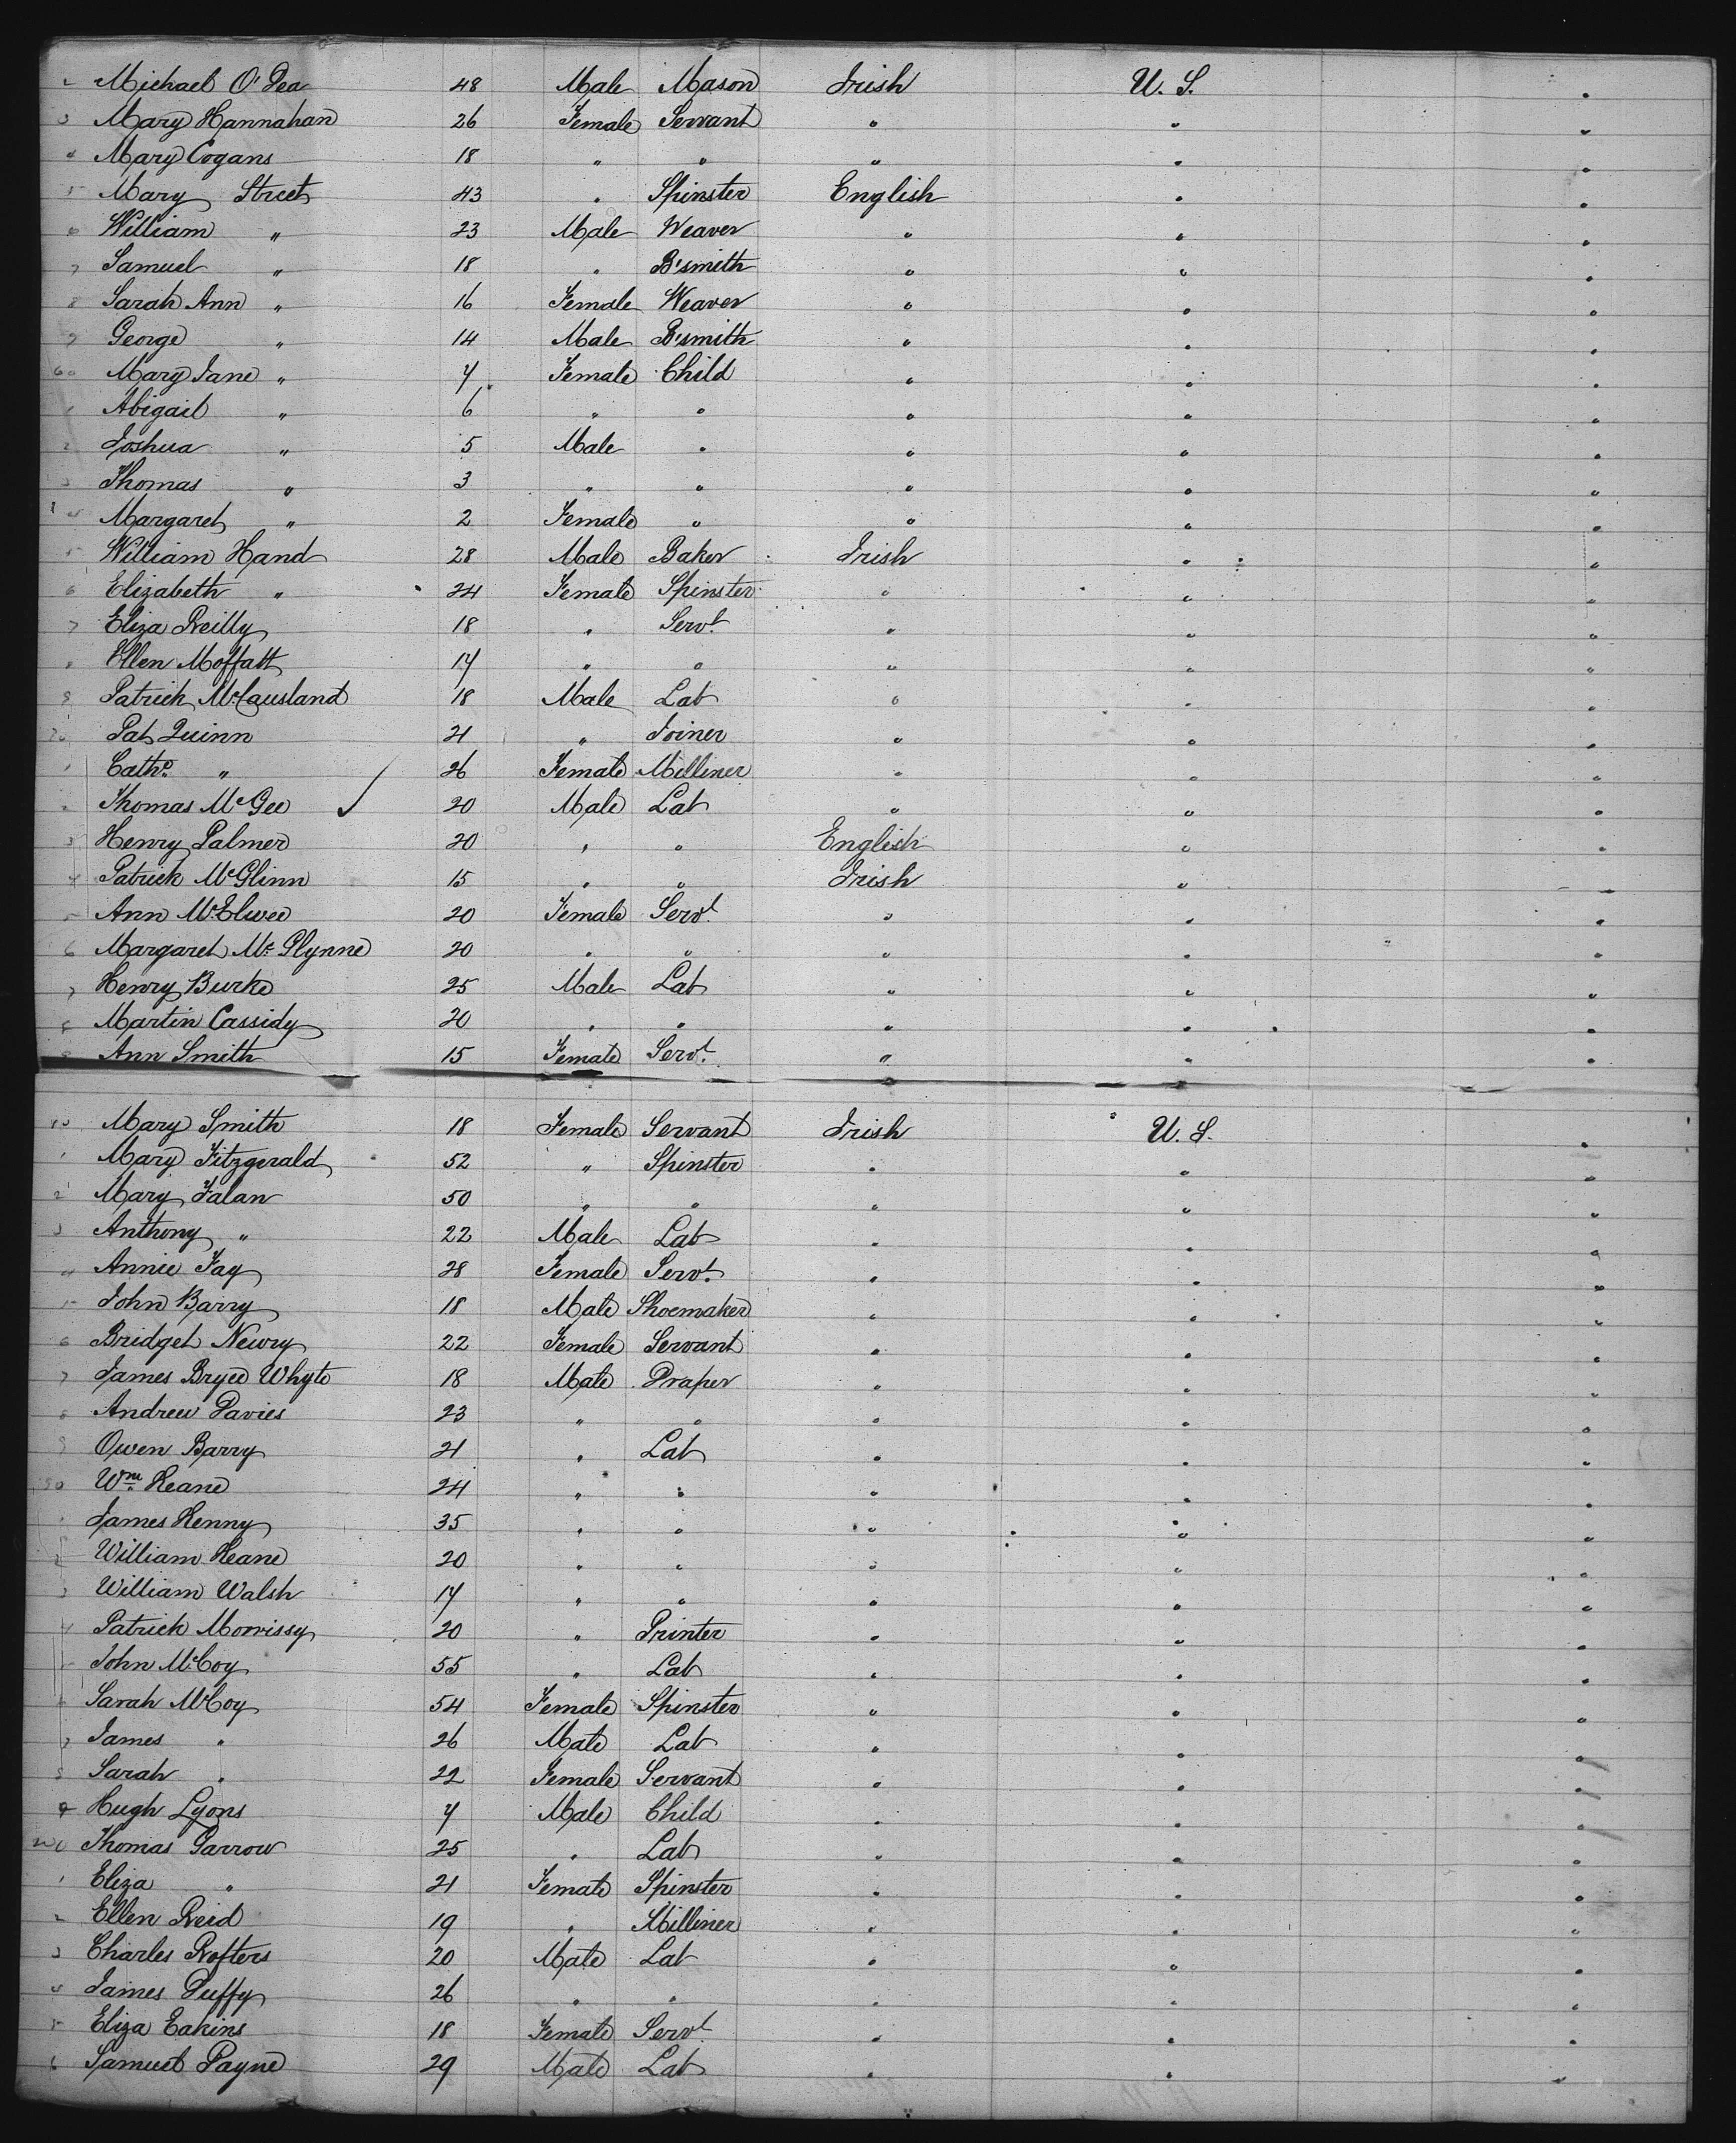 2 Michael O'Dea 48 Male Mason Irish U. S. "
3 Mary Hannahan 26 Female Servant " " "
4 Mary Cogans 18 " " " " "
5 Mary Street 43 " Spinster English " "
6 William " 23 Male Weaver " " "
7 Samuel " 18 " B'smith " " "
8 Sarah Ann " 16 Female Weaver " " "
9 George " 14 Male B'smith " " "
60 Mary Jane " 7 Female Child " " "
1 Abigail " 6 " " " " "
2 Joshua " 5 Male " " " "
3 Thomas " 3 " " " " "
4 Margaret " 2 Female " " " "
5 William Hand 28 Male Baker Irish " "
6 Elizabeth " 24 Female Spinster " " "
7 Eliza Reilly 18 " Servt. " " "
8 Ellen Moffatt 17 " " " " "
9 Patrick McCausland 18 Male Lab " " "
70 Pat Quinn 21 " Joiner " " "
1 Cathe. " 26 Female Milliner " " "
2 Thomas McGee 20 Male Lab " " "
3 Henry Palmer 20 " " English " "
4 Patrick McGlinn 15 " " Irish " "
5 Ann McElwee 20 Female Servt. " " "
6 Margaret Mc Glynne 20 " " " " "
7 Henry Burke 25 Male Lab " " "
8 Martin Cassidy 20 " " " " "
9 Ann Smith 15 Female Servt. " " "
80 Mary Smith 18 Female Servant Irish U. S. "
1 Mary Fitzgerald 52 " Spinster " " "
2 Mary Falan 50 " " " " "
3 Anthony " 22 Male Lab " " "
4 Annie Fay 28 Female Servt. " " "
5 John Barry 18 Male Shoemaker " " "
6 Bridget Newry 22 Female Servant " " "
7 James Bryce Whyte 18 Male Draper " " "
8 Andrew Davies 23 " " " " "
9 Owen Barry 21 " Lab " " "
90 Wm. Keane 24 " " " " "
1 James Kenny 35 " " " " "
2 William Keane 20 " " " " "
3 William Walsh 17 " " " " "
4 Patrick Morrissy 20 " Printer " " "
5 John McCoy 55 " Lab " " "
6 Sarah McCoy 54 Female Spinster " " "
7 James " 26 Male Lab " " "
8 Sarah " 22 Female Servant " " "
9 Hugh Lyons 7 Male Child " " "
Thomas Garrow 25 " Lab " " "
1 Eliza " 21 Female Spinster " " "
2 Ellen Reid 19 " Milliner " " "
3 Charles Rofters 20 Male Lab " " "
4 James Duffy 26 " " " " "
5 Eliza Eakins 18 Female Servt. " " "
6 Samuel Payne 29 Male Lab " " "